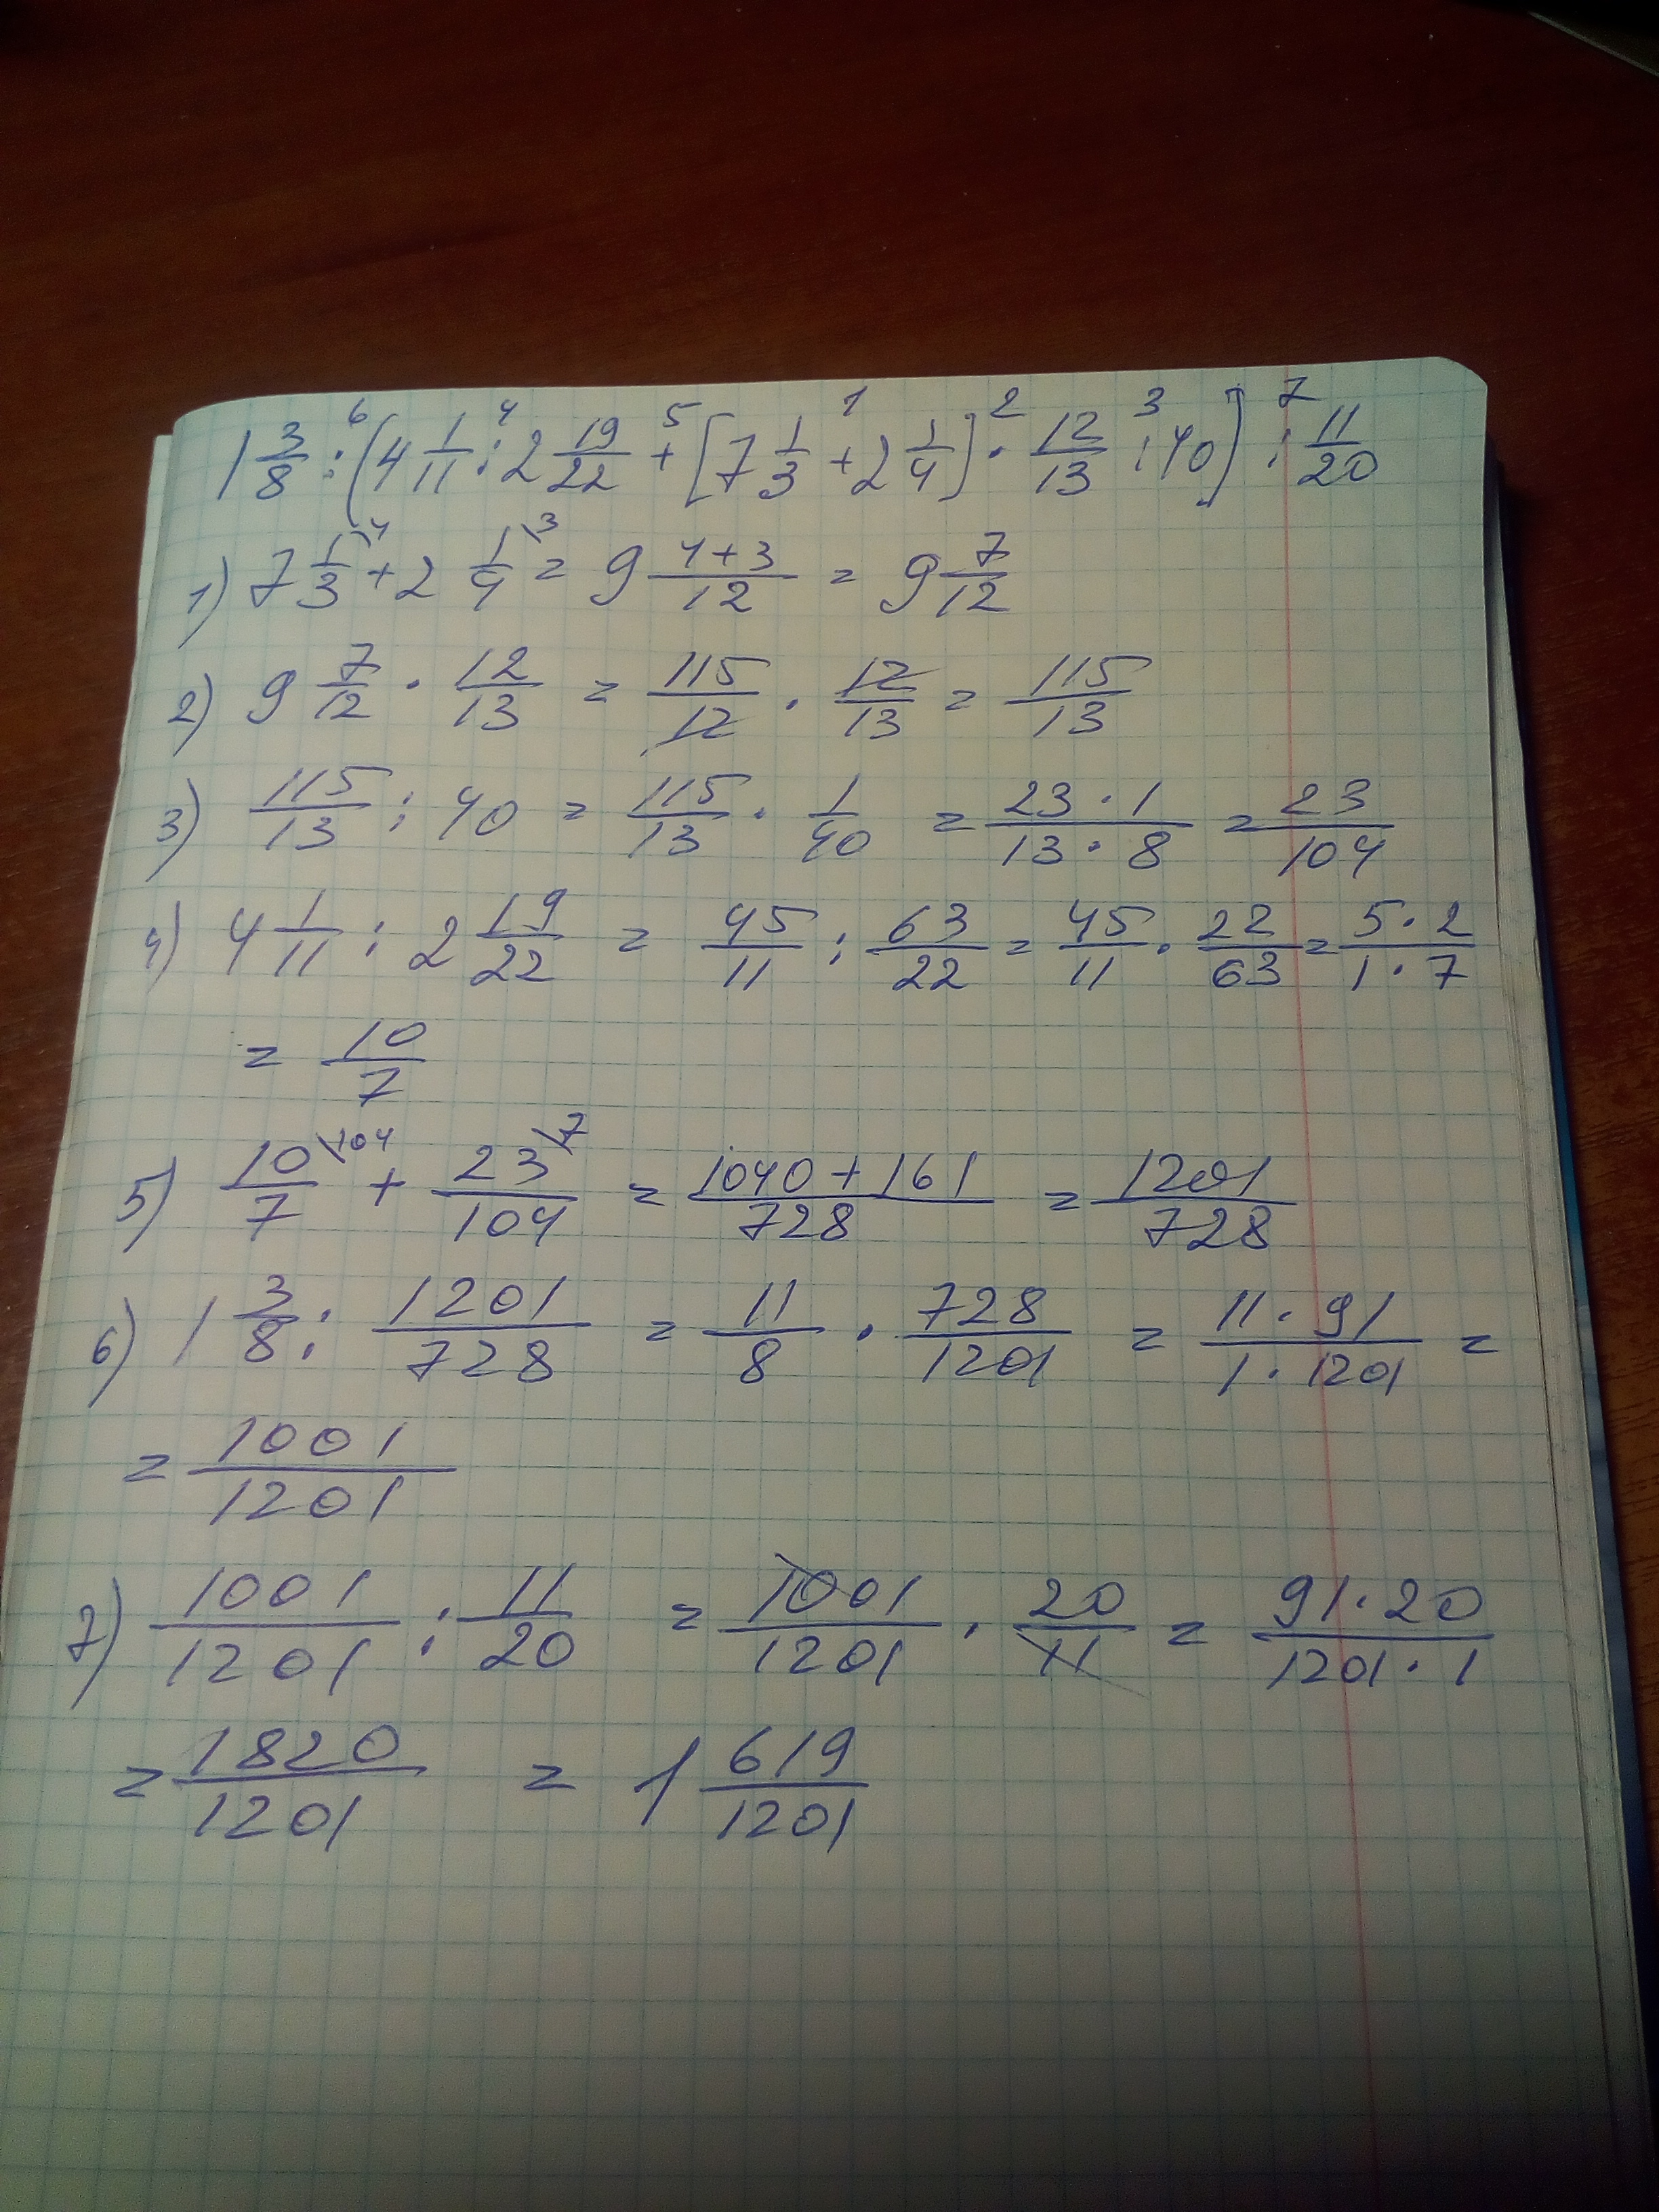 1 3/8 :⁶ (4 1/11 :⁴ 2 19/22 +⁵ [7 1/3 +¹ 2 1/4] ·² 12/13 :³ 40) :⁷ 11/20
1) 7 1/3\4 + 2 1/4\3 = 9 4+3/12 = 9 7/12
2) 9 7/12 · 12/13 = 115/12 · 12/13 = 115/13
3) 115/13 : 40 = 115/13 · 1/40 = 23·1/13·8 = 23/104
4) 4 1/11 : 2 19/22 = 45/11 : 63/22 = 45/11 · 22/63 = 5·2/1·7
= 10/7
5) 10/7\104 + 23/104\7 = 1040+161/728 = 1201/728
6) 1 3/8 : 1201/728 = 11/8 · 728/1201 = 11·91/1·1201 =
= 1001/1201
7) 1001/1201 : 11/20 = 1001/1201 · 20/11 = 91·20/1201·1
= 1820/1201 = 1 619/1201